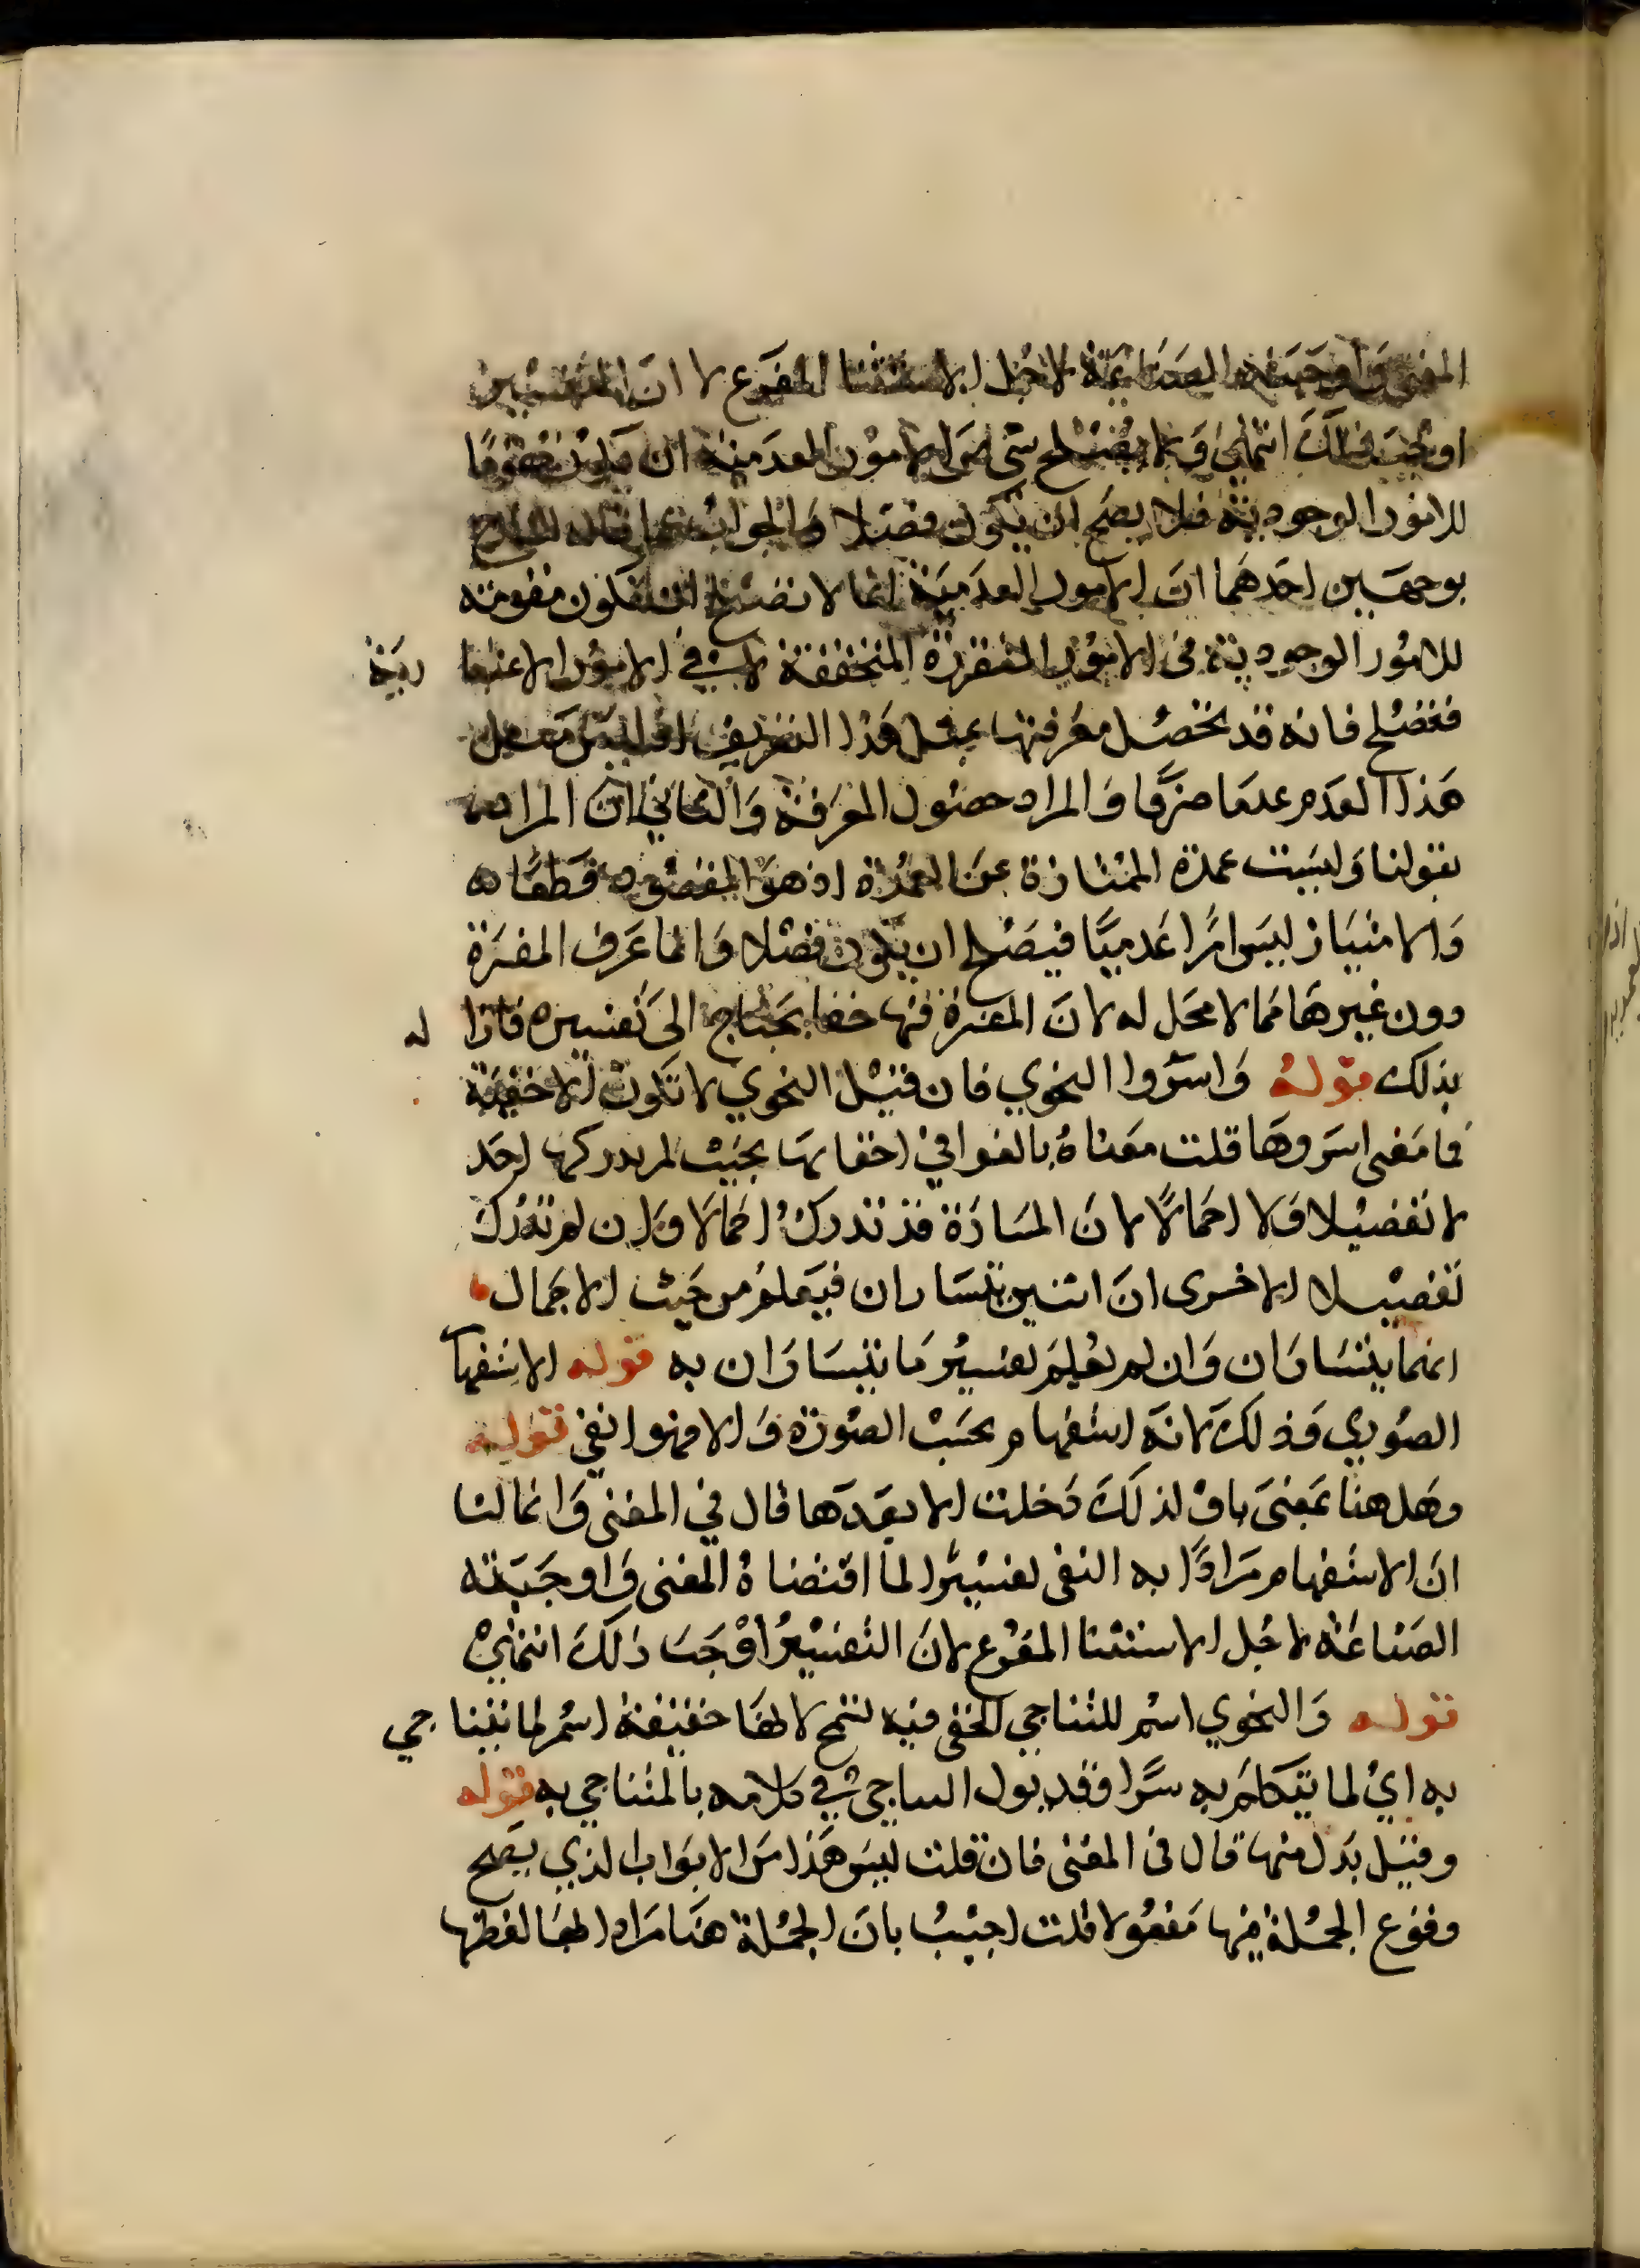 المعنى واوجبته الصناعية لاجل الاستثنا المفرع لا ان التفسير
اوجب ذلك انتهى ولا يصلح شي من الامور العدمية ان يكون مقوما
للامور الوجودية فلا يصح ان يكون فصلا والجواب
بوجهين احدهما ان الامور العدمية انما لا تصلح ان تكون مقومة
للامور الوجودية في الامور المتقررة المتحققة لا في الامور الاعتبا رية
فتصلح فانه قد تحصل معرفتها بمثل هذا التعريف اذ ليس مثل
هذا العدم عدما صرفا والمراد حصول المعرفة والثاني ان المراد
بقولنا وليست عمدة الممتازة عن العمدة اذ هو المقصود قطعا
والامتياز ليس امرا عدميا فيصلح ان يكون فصلا وانما عرف المفسرة
دون غيرها مما لا محل له لان المفسرة فيها خفا يحتاج الى تفسيره فازا له
بذلك قوله واسروا النجوي فان قيل النجوي لا تكون الا خفية
فما معنى اسروها قلت معناه بالغوا في اخفايها بحيث لم يدركها احد
لا تفصيلا ولا اجمالا لان المسارة قد تدرك اجمالا وان لم تدرك
تفصيلا الا خرى ان اثنين يتساران فيعلم من حيث الاجمال
انهما يتساران وان لم يعلم تفسير ما يتساران به قوله الاستفها
الصوري وذلك لانه استفهام بحسب الصورة والا فهو نفي قوله
وهل هنا بمعنى ما ولذلك دخلت الا بعدها قال في المغني وانما لنا
ان الاستفهام مرادا به النفي تفسيرا لما اقتضاه المعنى واوجبته
الصناعة لاجل الاستثنا المفرع لان التفسير اوجب ذلك انتهى
قوله والنجوي اسم للتناجي الخفي فيه تسمح لانها حقيقة اسم لما يتنا جي
به اي لما يتكلم به سرا فقد في كلامه بالمتناجي به قوله
وقيل بدل منها قال في المغني فان قلت ليس هذا من الابواب الذي يصح
وقوع الجملة فيها مفعولا قلت اجيب بان الجملة هنا مراد بها لفظها